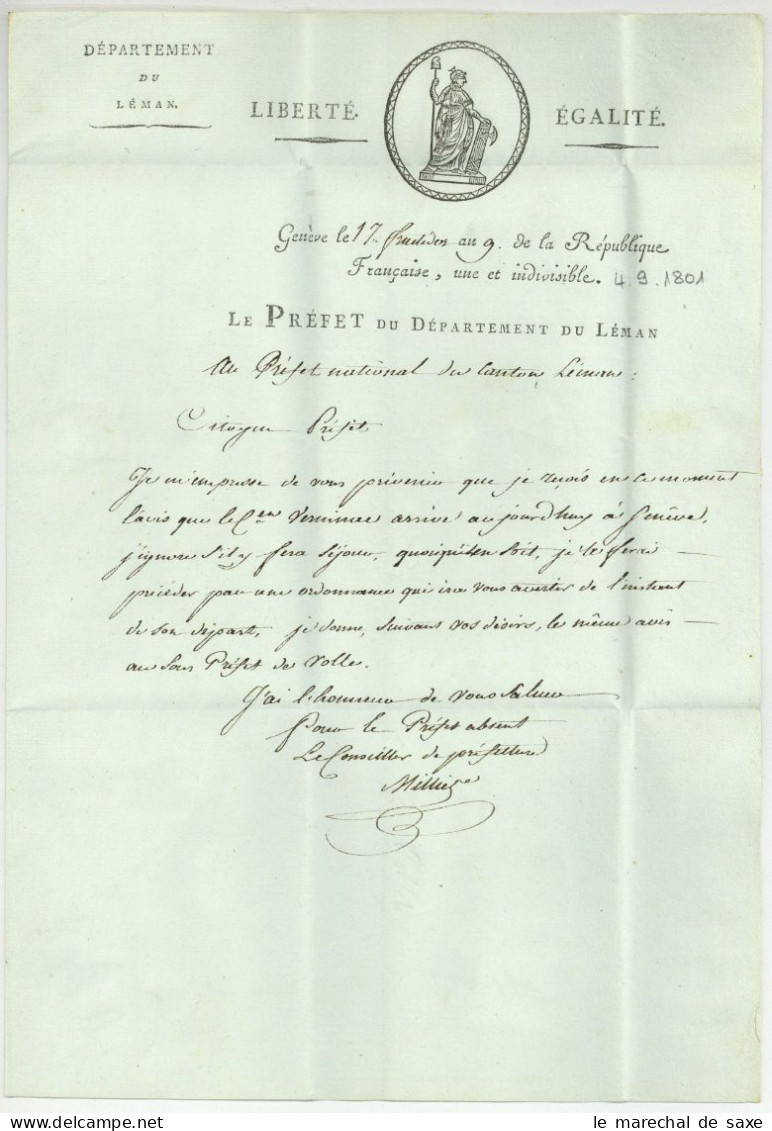 DÉPARTEMENT
DU
LÉMAN.
LIBERTÉ. ÉGALITÉ.
Genève le 17. fructidor an 9. de la République
Française, une et indivisible. 4. 9. 1801
LE PRÉFET DU DÉPARTEMENT DU LÉMAN
Au Préfet national du Canton Léman:
Citoyen Préfet
Je m'empresse de vous prévenir que je reçois en ce moment
l'avis que le Cen Verninac arrive aujourdhuy à Genève,
j'ignore s'il y fera séjour, quoiqu'il en soit, je le ferai
précéder par une ordonnance qui ira vous avertir de l'instant
de son départ, je donne, suivant vos désirs, le même avis
au sous Préfet de Rolle.
J'ai l'honneur de vous saluer
Pour le Préfet absent
Le Conseiller de préfecture
le marechal de saxe